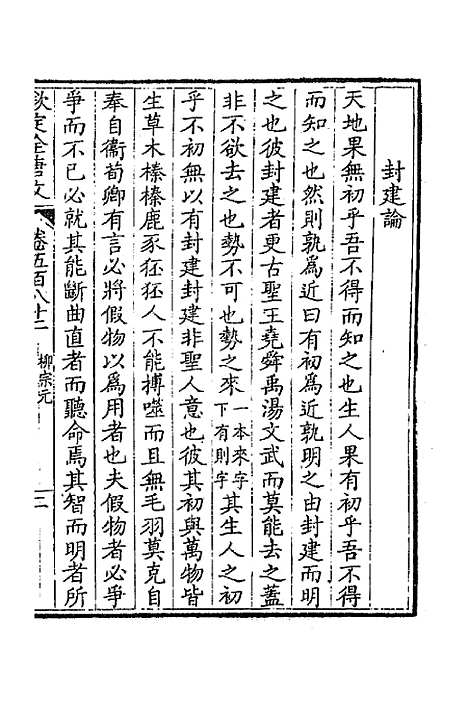 封建論
天地果無初乎吾不得而知之也生人果有初乎吾不得
而知之也然則孰為近曰有初為近孰明之由封建而明
之也彼封建者更古聖王堯舜禹湯文武而莫能去之蓋
非不欲去之也勢不可也勢之來一本來字下有則字其生人之初
乎不初無以有封建封建非聖人意也彼其初與萬物皆
生草木榛榛鹿豕狉狉人不能搏噬而且無毛羽莫克自
奉自衞荀卿有言必將假物以為用者也夫假物者必爭
爭而不已必就其能斷曲直者而聽命焉其智而明者所
欽定全唐文 卷五百八十二 柳宗元 二